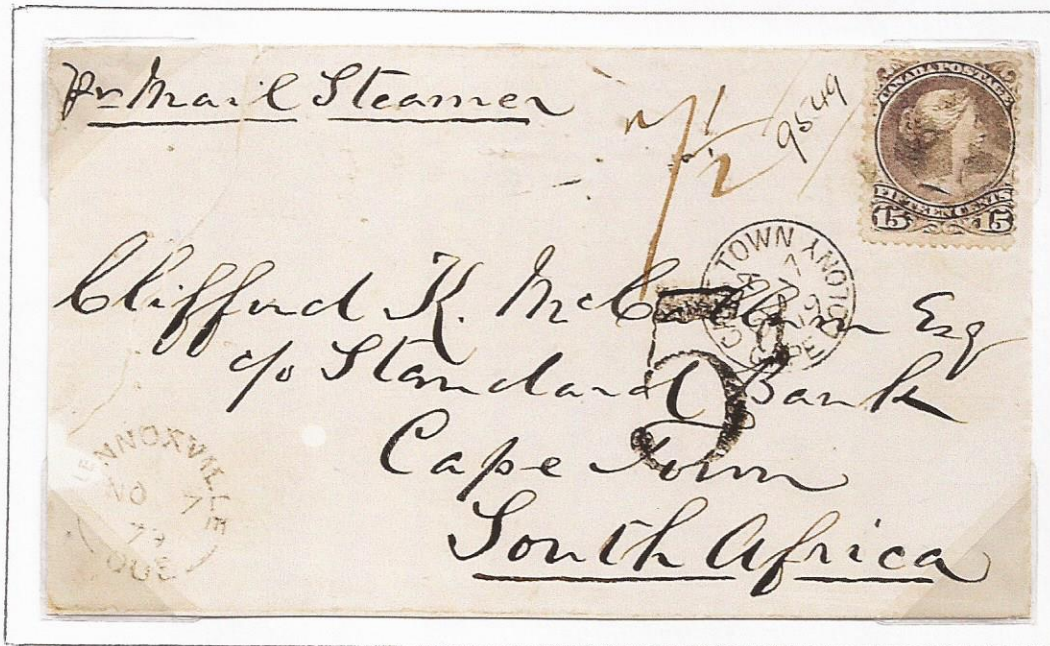 Pr Mail Steamer
1/2
9549
CANADA POSTAGE
FIFTEEN CENTS
15 15
TOWN
COLONY
Clifford K. Esq
c/o Standard Bank
Cape Town
South Africa
ENNOXVILLE
NO 7
79
QUE